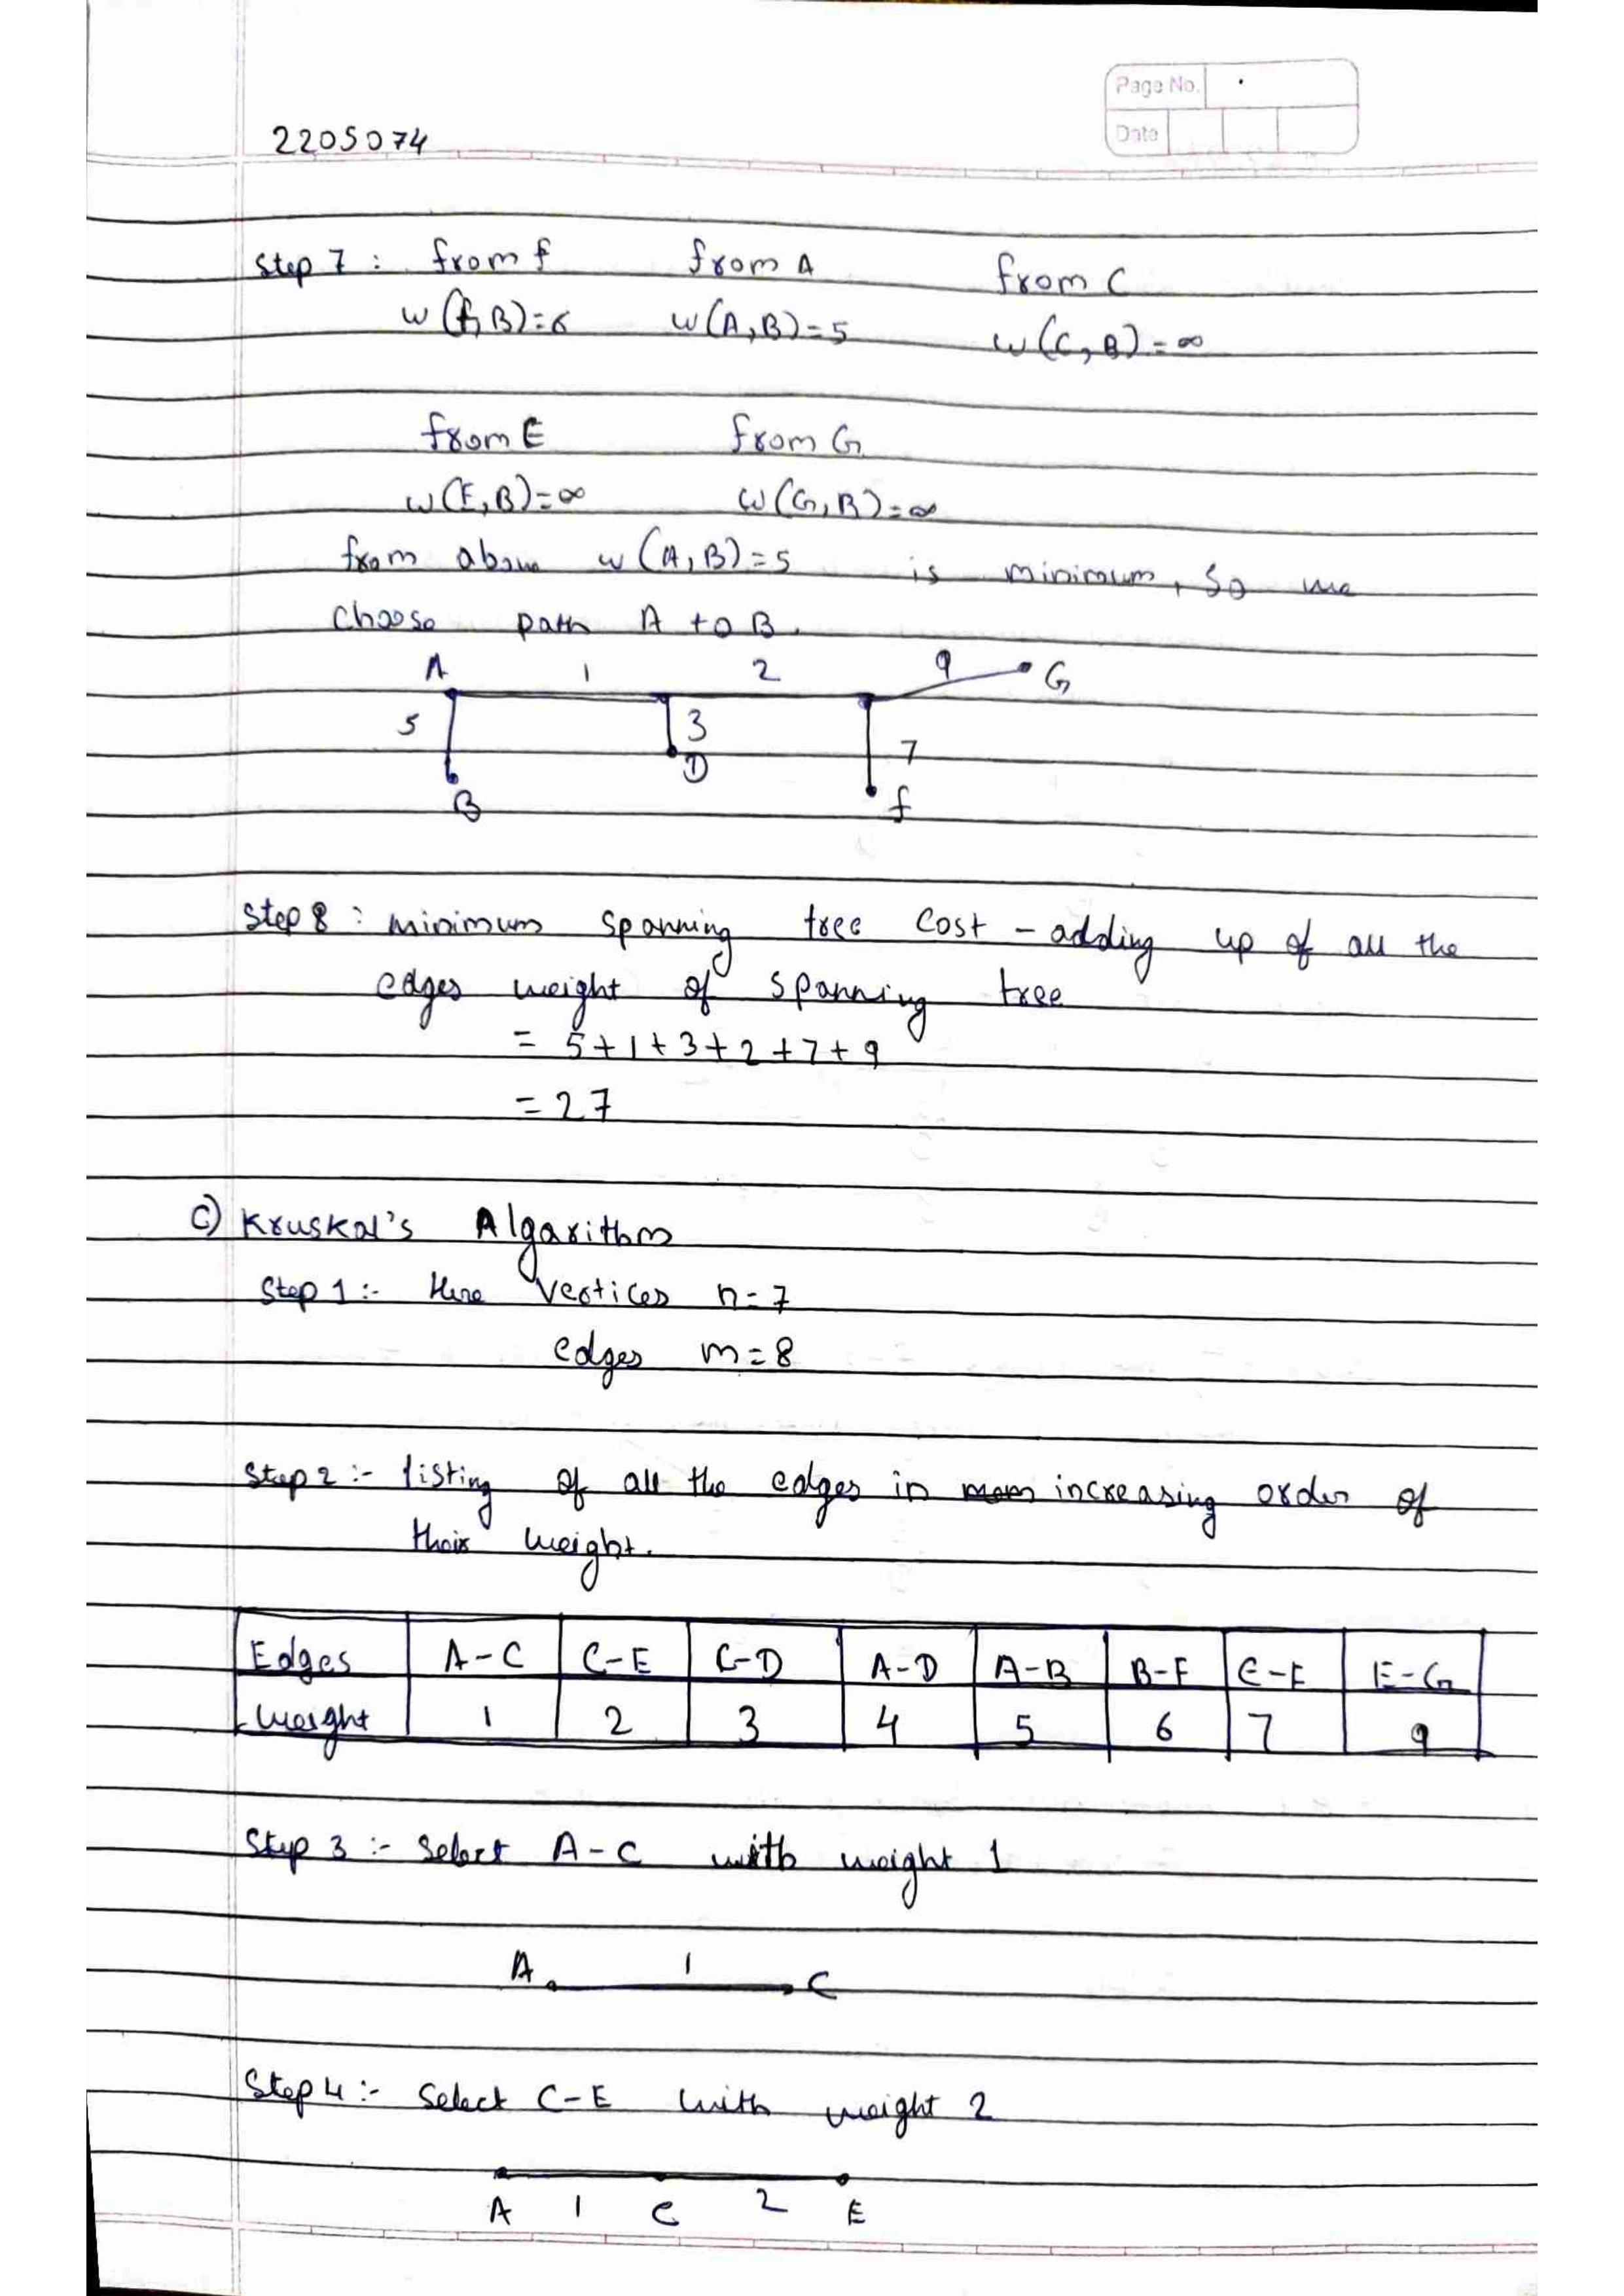 Page No.
Date
2205074
Step 7 : from f from A from C
w(f,B)=6 w(A,B)=5 w(C,B)=∞
from E from G
w(E,B)=∞ w(G,B)=∞
from above w(A,B)=5 is minimum, So we
choose path A to B.
A 1 2 9 G
5 3 7
D
B f
Step 8 : minimum spanning tree cost - adding up of all the
edges weight of spanning tree
= 5+1+3+2+7+9
= 27
c) Kruskal's Algorithm
Step 1 :- Here vertices n=7
edges m=8
Step 2 :- listing of all the edges in increasing order of
their weight.
Edges A-C C-E C-D A-D A-B B-F E-F E-G
weight 1 2 3 4 5 6 7 9
Step 3 :- Select A-C with weight 1
A 1 C
Step 4 :- Select C-E with weight 2
A 1 C 2 E